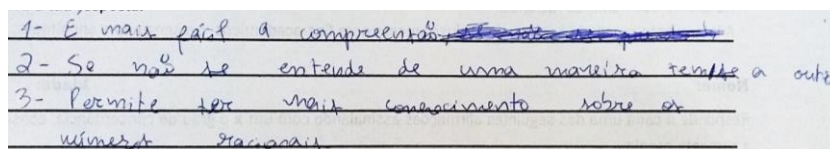 1- E mais fácil a compreensão,
2- Se não se entende de uma maneira temse a outr
3- Permite ter mais conhecimento sobre os
números racionais